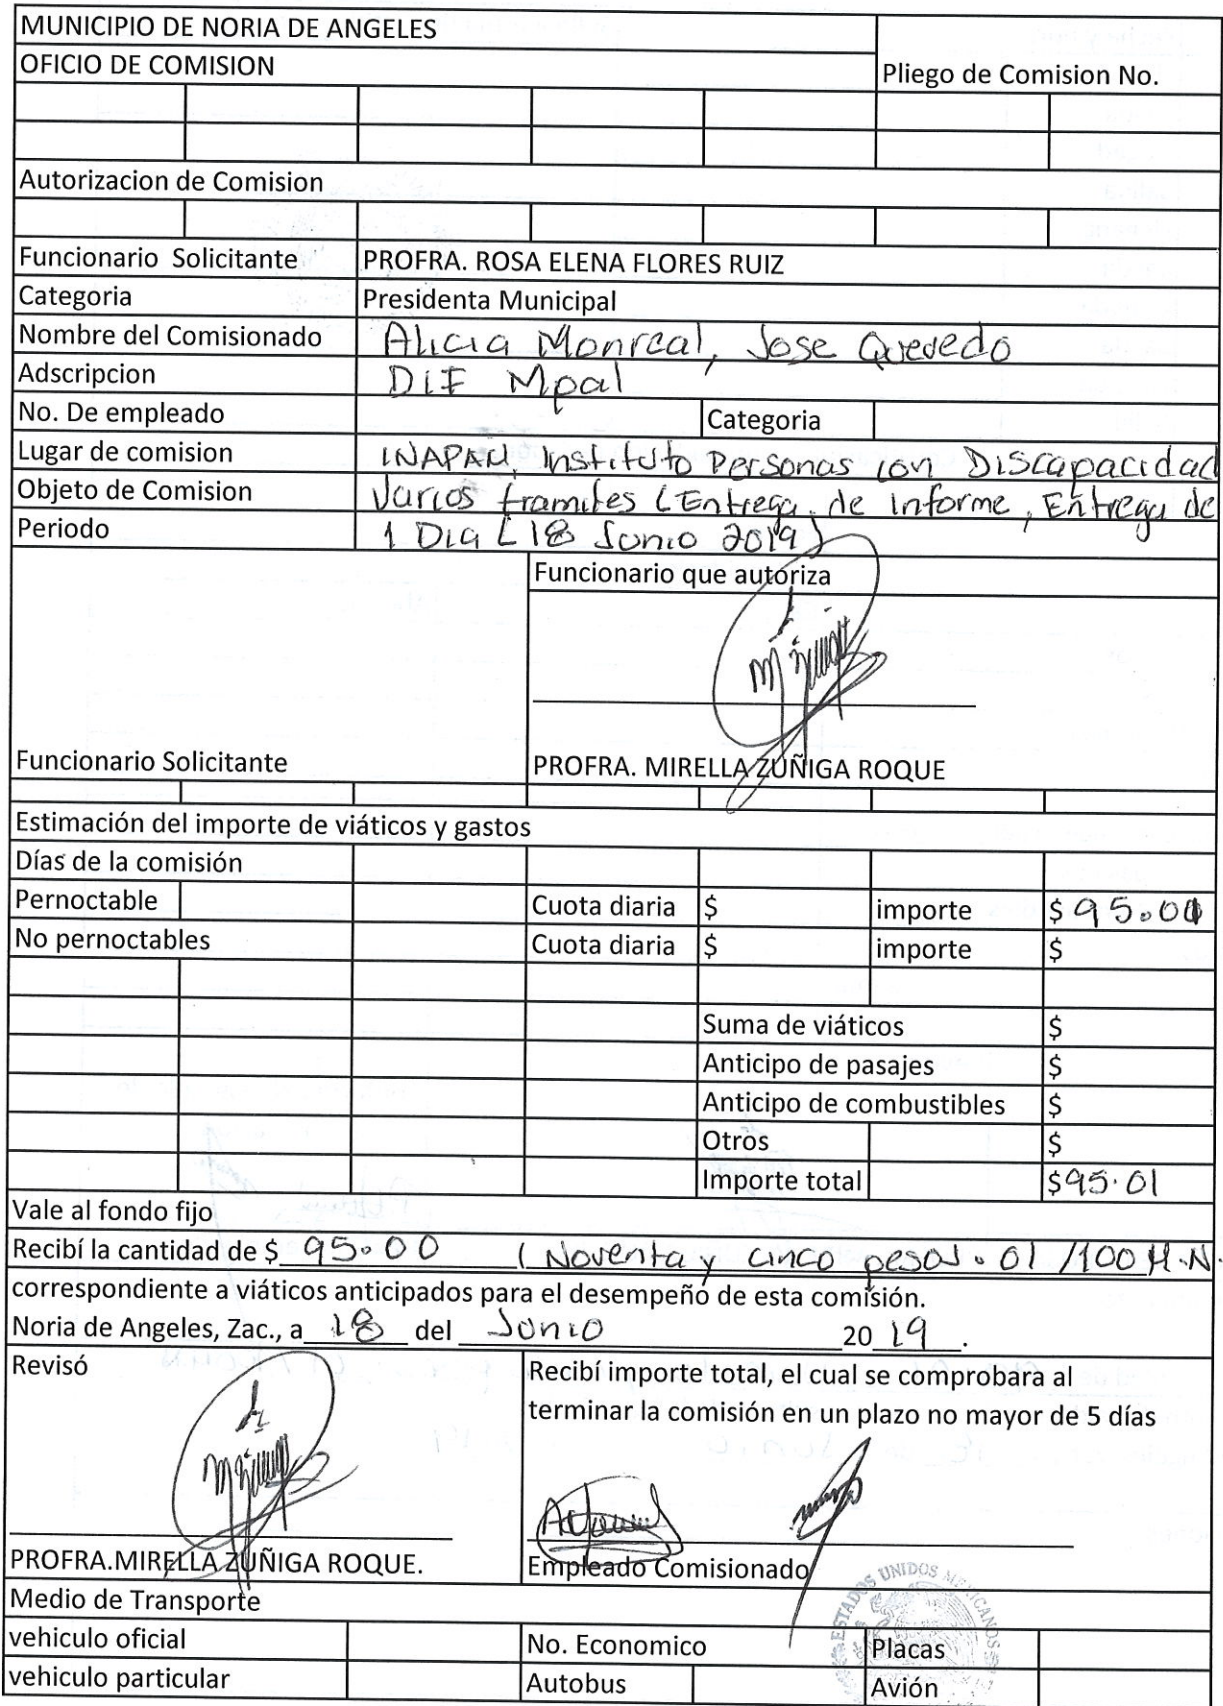 MUNICIPIO DE NORIA DE ANGELES
OFICIO DE COMISION
Pliego de Comision No.
Autorizacion de Comision
Funcionario Solicitante PROFRA. ROSA ELENA FLORES RUIZ
Categoria Presidenta Municipal
Nombre del Comisionado Alicia Monreal, Jose Quevedo
Adscripcion DIF Mpal
No. De empleado Categoria
Lugar de comision INAPAM, Instituto Personas con Discapacidad
Objeto de Comision Varios tramites (Entrega de Informe, Entrega de
Periodo 1 Dia (18 Junio 2019)
Funcionario que autoriza
Funcionario Solicitante PROFRA. MIRELLA ZUÑIGA ROQUE
Estimación del importe de viáticos y gastos
Días de la comisión
Pernoctable Cuota diaria $ importe $ 95.01
No pernoctables Cuota diaria $ importe $
Suma de viáticos $
Anticipo de pasajes $
Anticipo de combustibles $
Otros $
Importe total $95.01
Vale al fondo fijo
Recibí la cantidad de $ 95.00 (Noventa y cinco pesos. 01 /100 M.N.
correspondiente a viáticos anticipados para el desempeño de esta comisión.
Noria de Angeles, Zac., a 18 del Junio 2019.
Revisó
Recibí importe total, el cual se comprobara al
terminar la comisión en un plazo no mayor de 5 días
PROFRA.MIRELLA ZUÑIGA ROQUE. Empleado Comisionado
ESTADOS UNIDOS MEXICANOS
Medio de Transporte
vehiculo oficial No. Economico Placas
vehiculo particular Autobus Avión